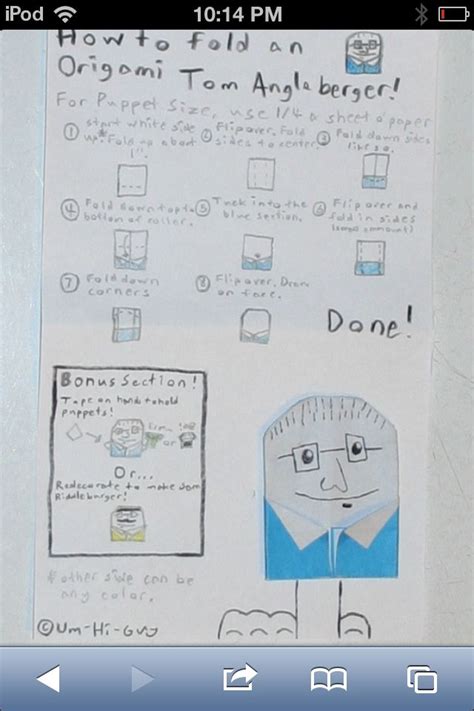 iPod 10:14 PM
How to fold an
Origami Tom Angleberger!
For Puppet size, use 1/4 a sheet o' paper
① start white side
up. * Fold up about
1".
② Flip over. Fold
sides to center.
③ Fold down sides
like so.
④ Fold down top to
bottom of collar.
⑤ Tuck into the
blue section.
⑥ Flip over and
fold in sides
⑦ Fold down
corners
⑧ Flip over. Draw
on face.
Done!
Bonus section!
Tape on hands to hold
puppets!
or
Or...
Redecorate to make Sam
Riddleburger!
*other side can be
any color.
©Um-Hi-Guy